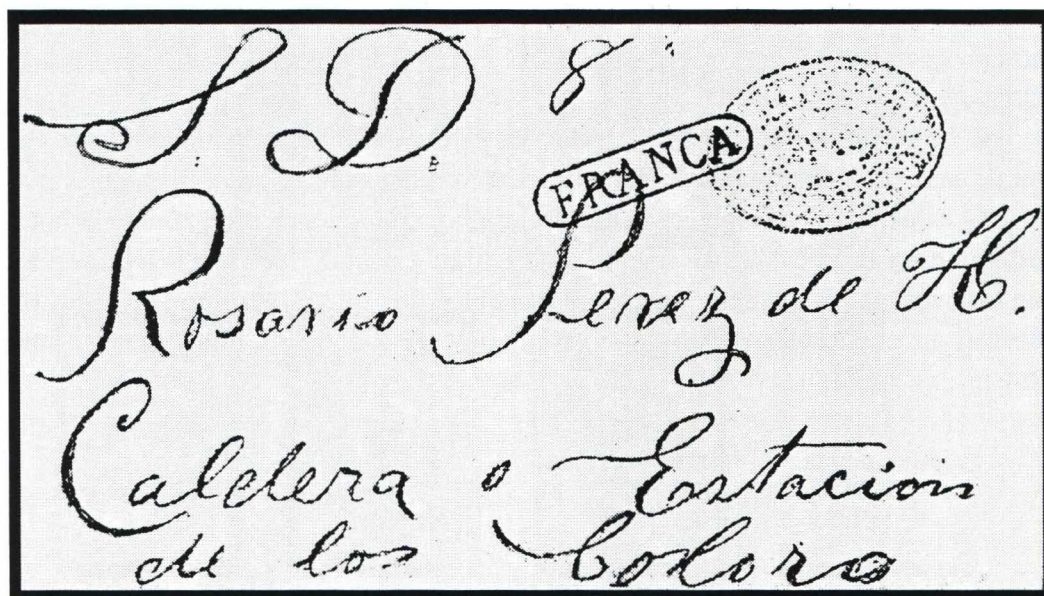 S D 8
FRANCA
Rosario Perez de H.
Caldera o Estacion
de los Coloro